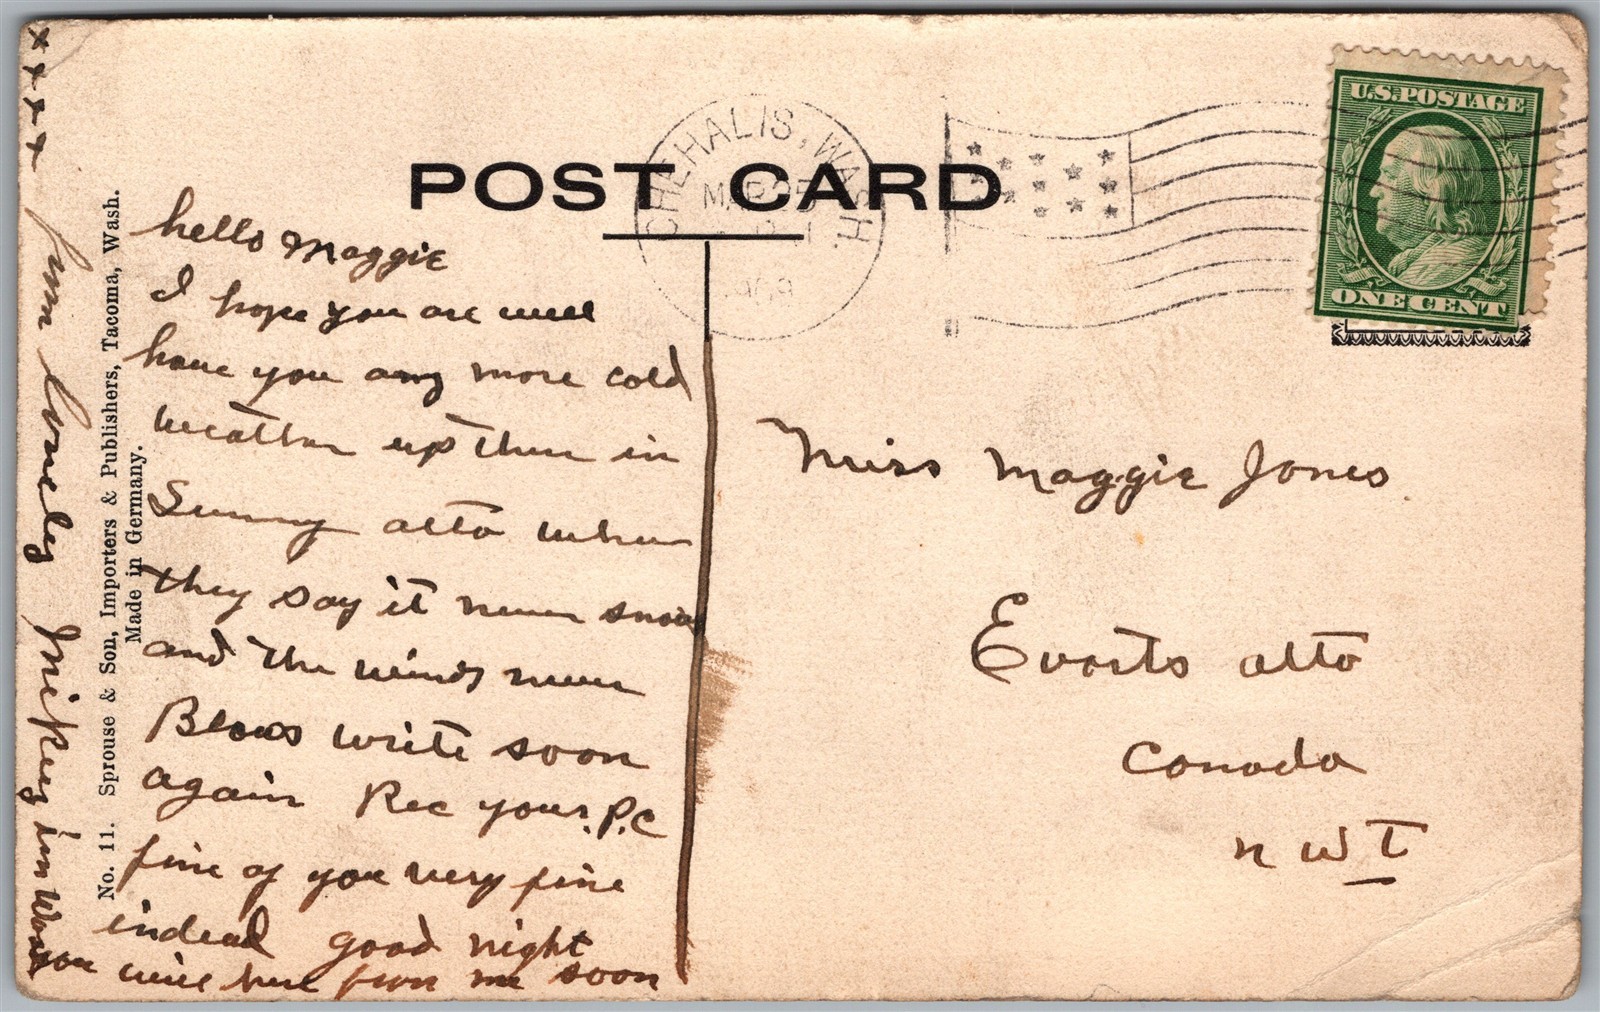 POST CARD
CHEHALIS, WASH.
MAR 25
1909
U.S. POSTAGE
ONE CENT
hello Maggie
I hope you are well
have you any more cold
weather up there in
Sunny alta where
they say it never snows
and the winds never
Blows write soon
again Rec your P.C
fine of you very fine
indead good night
you will here from me soon
x x x x from lonely Mikey in Wash
No. 11. Sprouse & Son, Importers & Publishers, Tacoma, Wash.
Made in Germany.
Miss Maggie Jones
Evarts alta
Canada
N W T